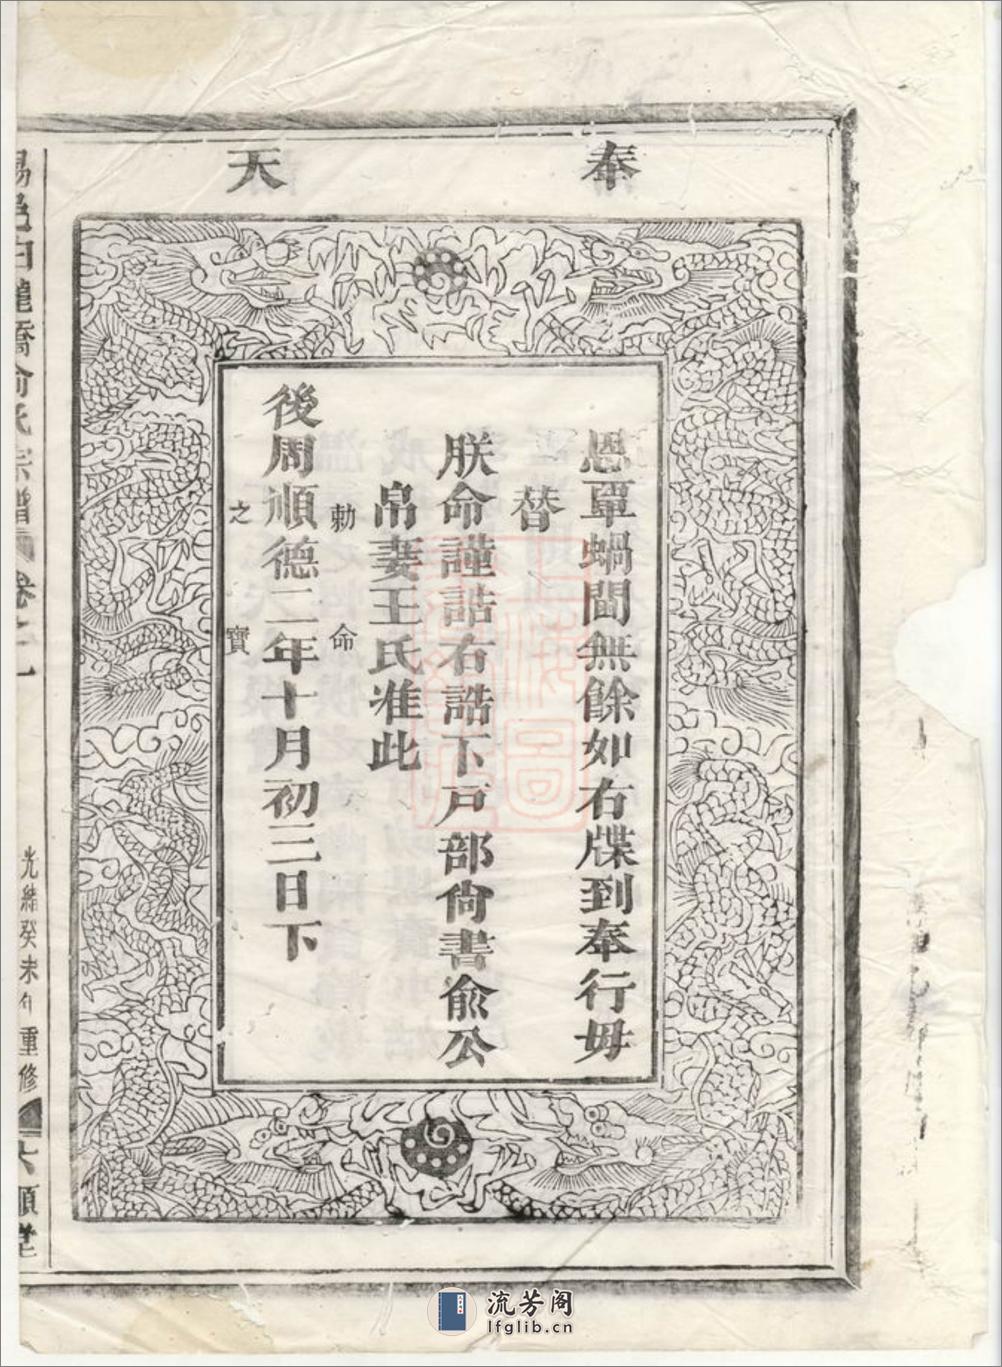 奉
天
恩覃蝸間無餘如右牒到奉行毋
替
朕命謹誥右誥下戸部尙書俞公
帛妻王氏准此
勅命
後周順德二年十月初三日下
之寶
邑白龍橋俞氏宗譜
卷之一
光緒癸未年重修
六順堂
流芳阁
lfglib.cn